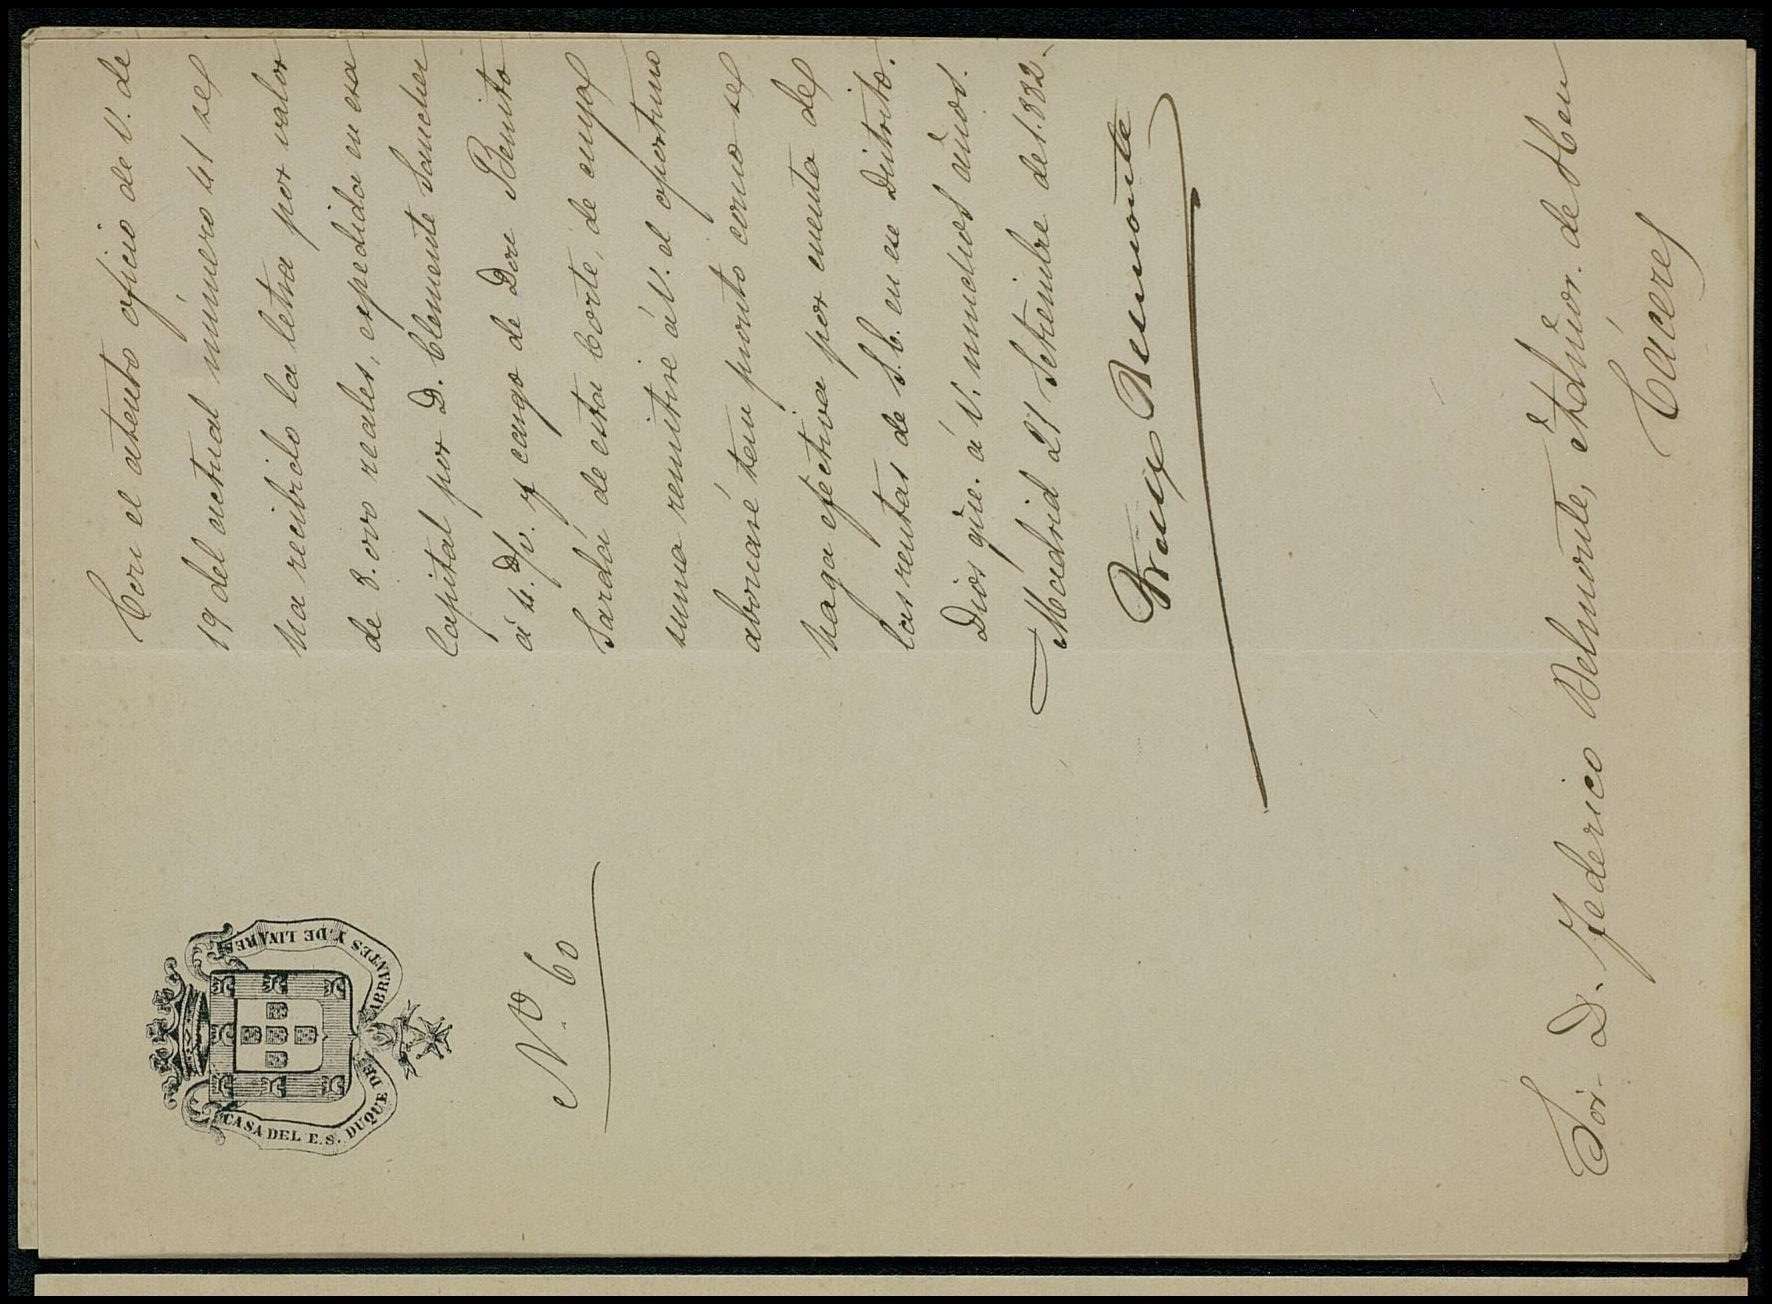 CASA DEL E. S. DUQUE DE ABRANTES Y DE LINARES
Nº. 60
Con el atento oficio de V. de
19 del actual número 41 se
ha recibido la letra por valor
de 8.000 reales, expedida en esa
Capital por D. Clemente Sanchez
á 4 d/v. y cargo de Don Benito
Sardá de esta Corte, de cuya
suma remitiré á V. el oportuno
abonaré tan pronto como se
haga efectiva por cuenta de
las rentas de S. E. en ese Distrito.
Dios gũe. á V. muchos años.
Madrid 21 Setiembre de 1.882.
Belmonte
Sor. D. Federico Belmonte, Admor. de
Cáceres